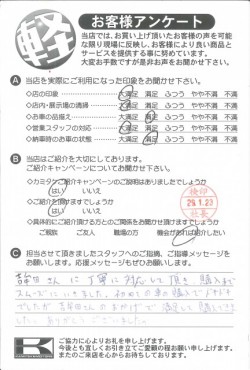 軽
お客様アンケート
当店では、お買い上げ頂いたお客様の声を可能
な限り現場に反映し、お客様により良い商品と
サービスを提供する事に努めています。
大変お手数ですが是非お声をお聞かせ下さい。
A 当店を実際にご利用になった印象をお聞かせ下さい。
◇店の印象 大満足 満足 ふつう やや不満 不満
◇店内・展示場の清掃 大満足 満足 ふつう やや不満 不満
◇お車の品揃え 大満足 満足 ふつう やや不満 不満
◇営業スタッフの対応 大満足 満足 ふつう やや不満 不満
◇納車時のお車の状態 大満足 満足 ふつう やや不満 不満
B 当店はご紹介を大切にしております。
ご紹介キャンペーンについてお聞かせ下さい。
◇カミタケご紹介キャンペーンのご説明はありましたでしょうか
はい いいえ
◇ご紹介頂けますでしょうか
はい いいえ
検印
店長
◇具体的にご紹介頂ける方との関係をお聞かせ頂けますでしょうか
ご親族 ご友人 職場の方 機会があれば紹介したい
C 担当させて頂きましたスタッフへのご指摘、ご指導メッセージを
お願いします。応援メッセージもぜひお願いします。
さんに丁寧に対応して頂き 購入まで
スムーズに
初めての車の購入で
でしたが さんのおかげで 満足して購入でき
ました。ありがとうございました。
K
ご協力に心よりお礼を申し上げます。
今後とも宜しくお引き立てご愛顧の程お願い申し上げます。
またのご来店を心からお待ちしております。